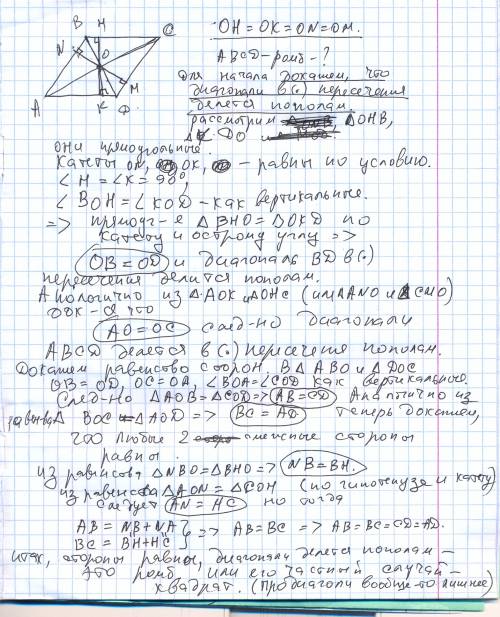 B H C
N O
M
A K D
OH = OK = ON = OM.
ABCD - ромб - ?
Для начала докажем, что
диагонали в (.) пересечения
делятся пополам.
рассмотрим ΔOHB,
ΔK DO
они прямоугольные.
Катеты OH, OK, - равны по условию.
∠H = ∠K = 90°,
∠BOH = ∠KOD - как вертикальные.
=> прямоуг-е ΔBHO = ΔOKD по
катету и острому углу =>
OB = OD и диагональ BD в (.)
пересечения делится пополам.
Аналогично из ΔAOK и ΔOHC (или ΔANO и ΔCMO)
док-ся что
AO = OC след-но диагонали
ABCD делятся в (.) пересечения пополам.
Докажем равенство сторон. В ΔABO и ΔDOC
OB = OD, OC = OA, ∠BOA = ∠COD как вертикальные.
След-но ΔAOB = ΔCOD => AB = CD Аналогично из
рав-ва Δ BOC = ΔAOD => BC = AD Теперь докажем,
что любые 2 смежные стороны
равны.
из равенства ΔNBO = ΔBHO => NB = BH.
из равенства ΔAON = ΔCOH (по гипотенузе и катету)
следует AN = HC но тогда
AB = NB + NA } => AB = BC => AB = BC = CD = AD.
BC = BH + HC
итак, стороны равны, диагонали делятся пополам -
это ромб, или его частный случай -
квадрат. (Про диагонали вообще-то лишнее)